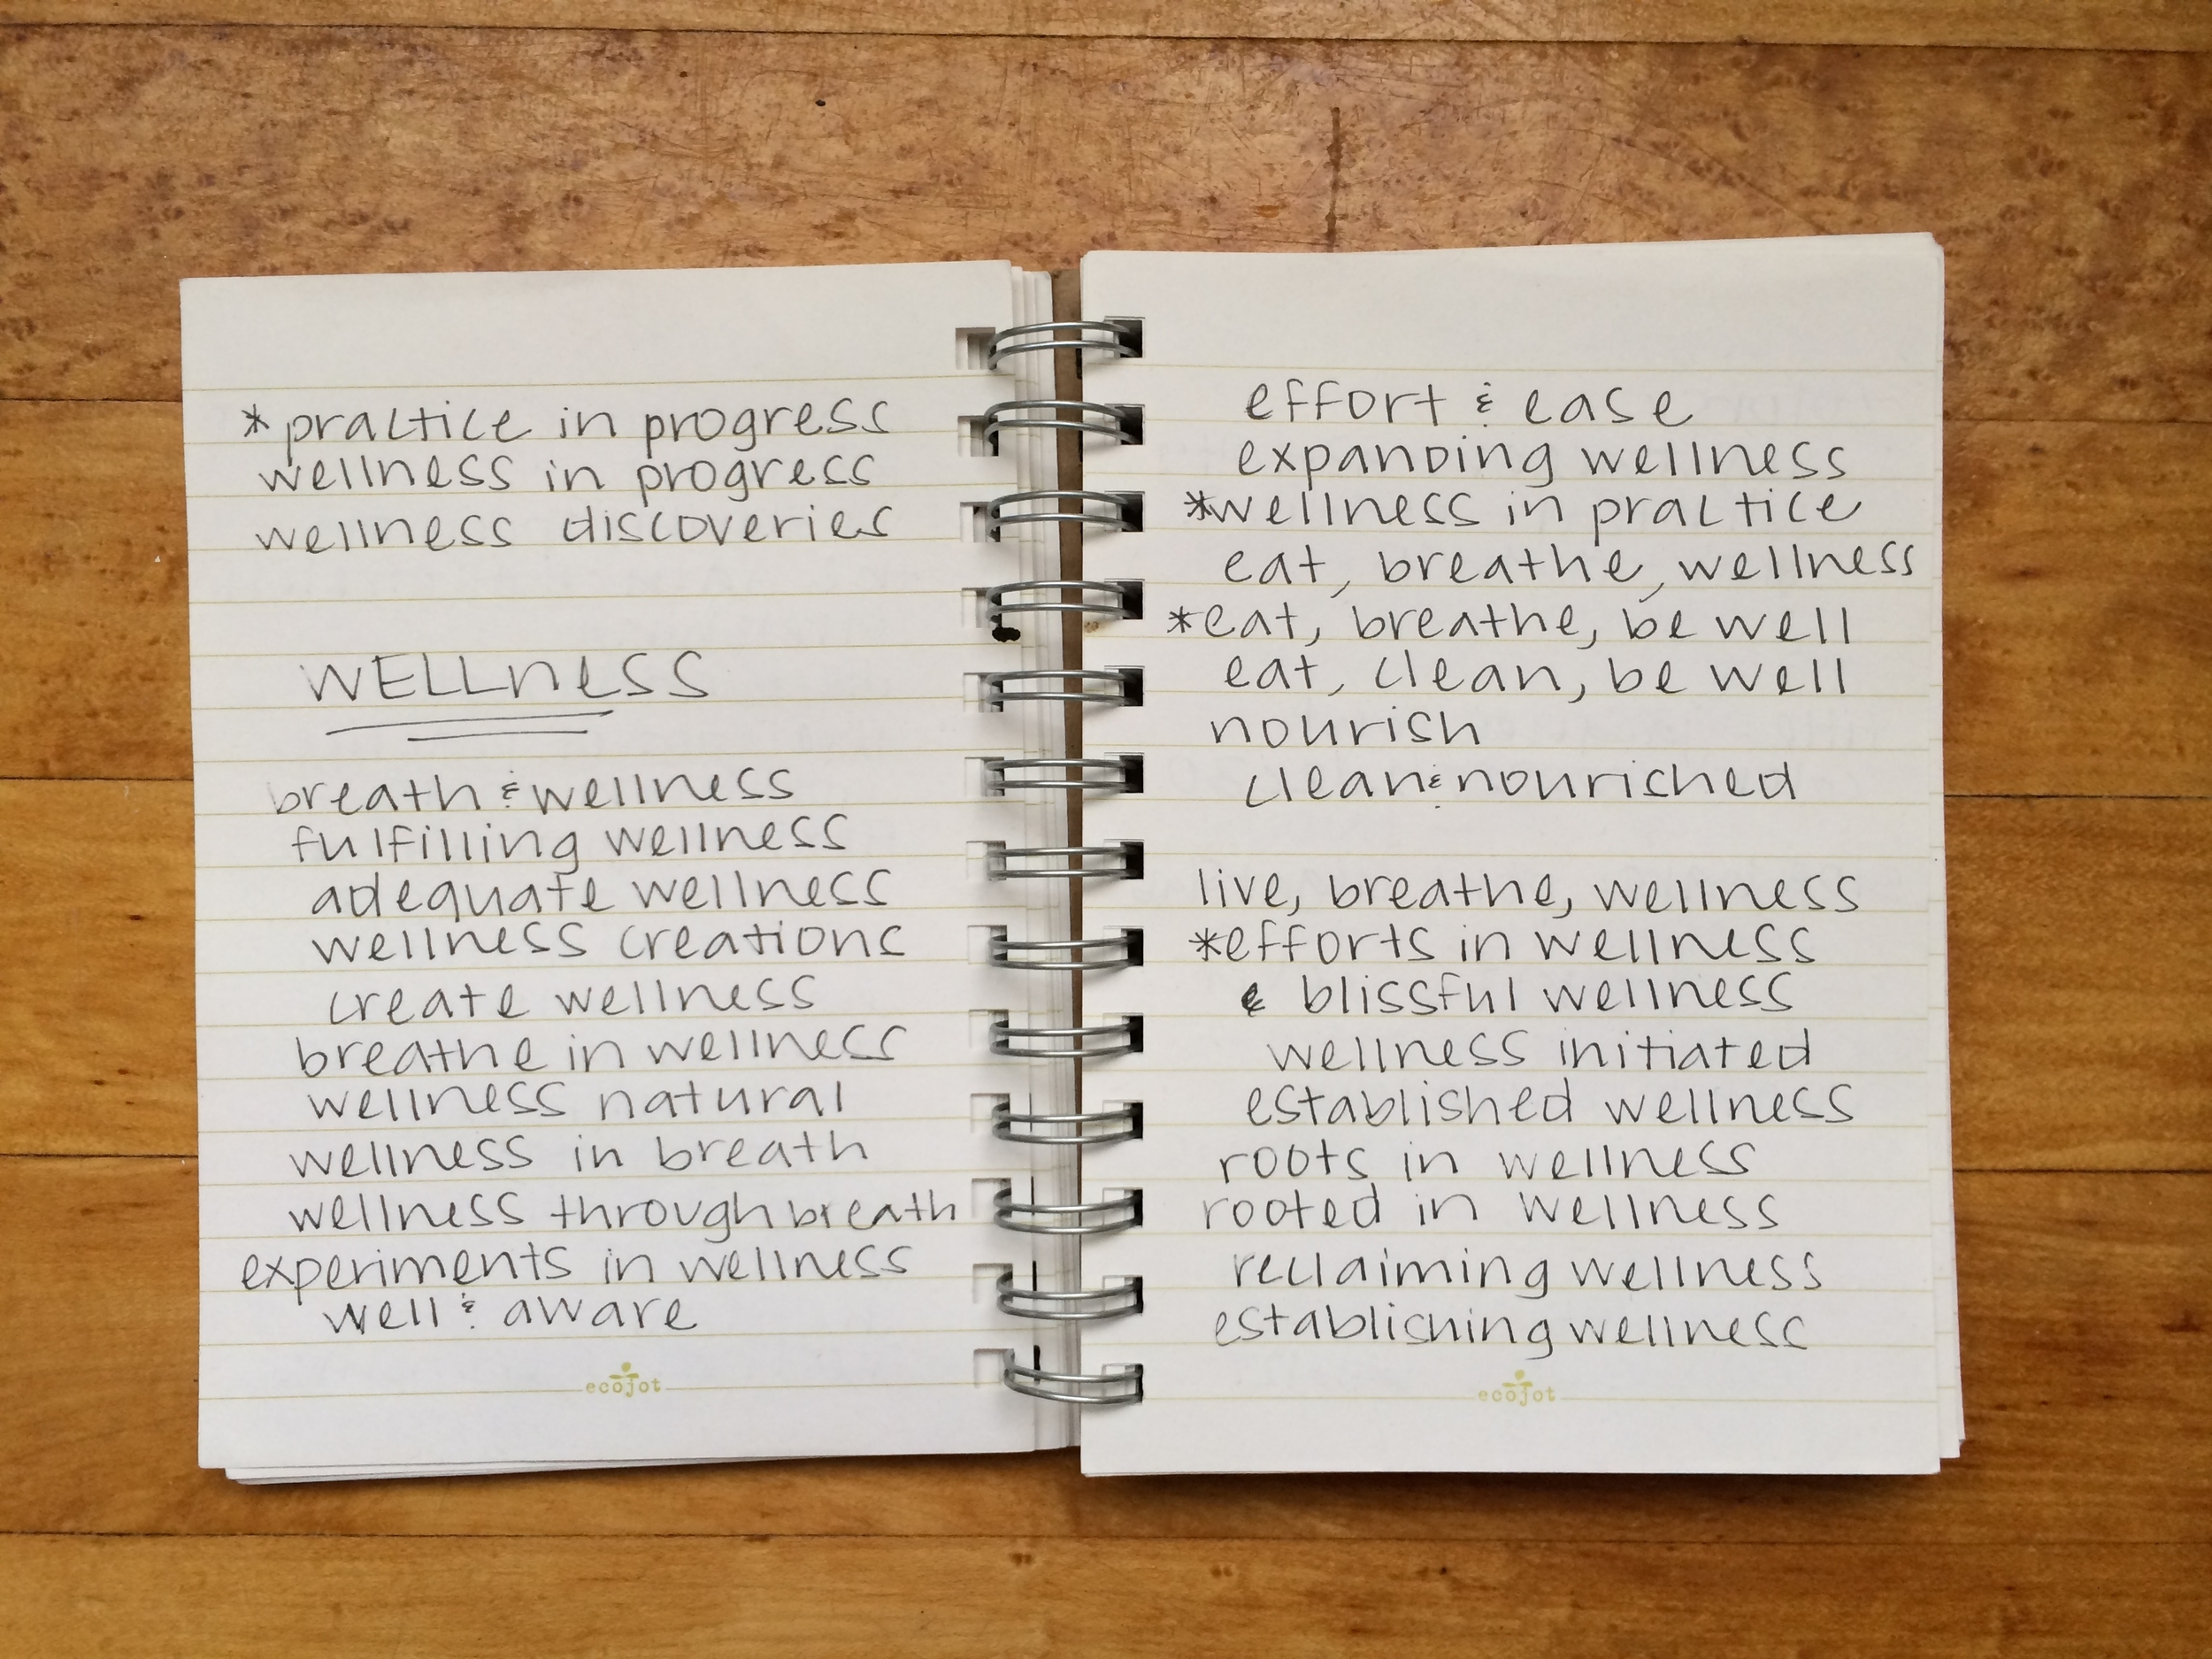 *practice in progress
wellness in progress
wellness discoveries
WELLnESS
breath & wellness
fulfilling wellness
adequate wellness
wellness creations
create wellness
breathe in wellness
wellness natural
wellness in breath
wellness through breath
experiments in wellness
well & aware
ecojot
effort & ease
expanding wellness
*wellness in practice
eat, breathe, wellness
*eat, breathe, be well
eat, clean, be well
nourish
clean & nourished
live, breathe, wellness
*efforts in wellness
& blissful wellness
wellness initiated
established wellness
roots in wellness
rooted in wellness
reclaiming wellness
establishing wellness
ecojot